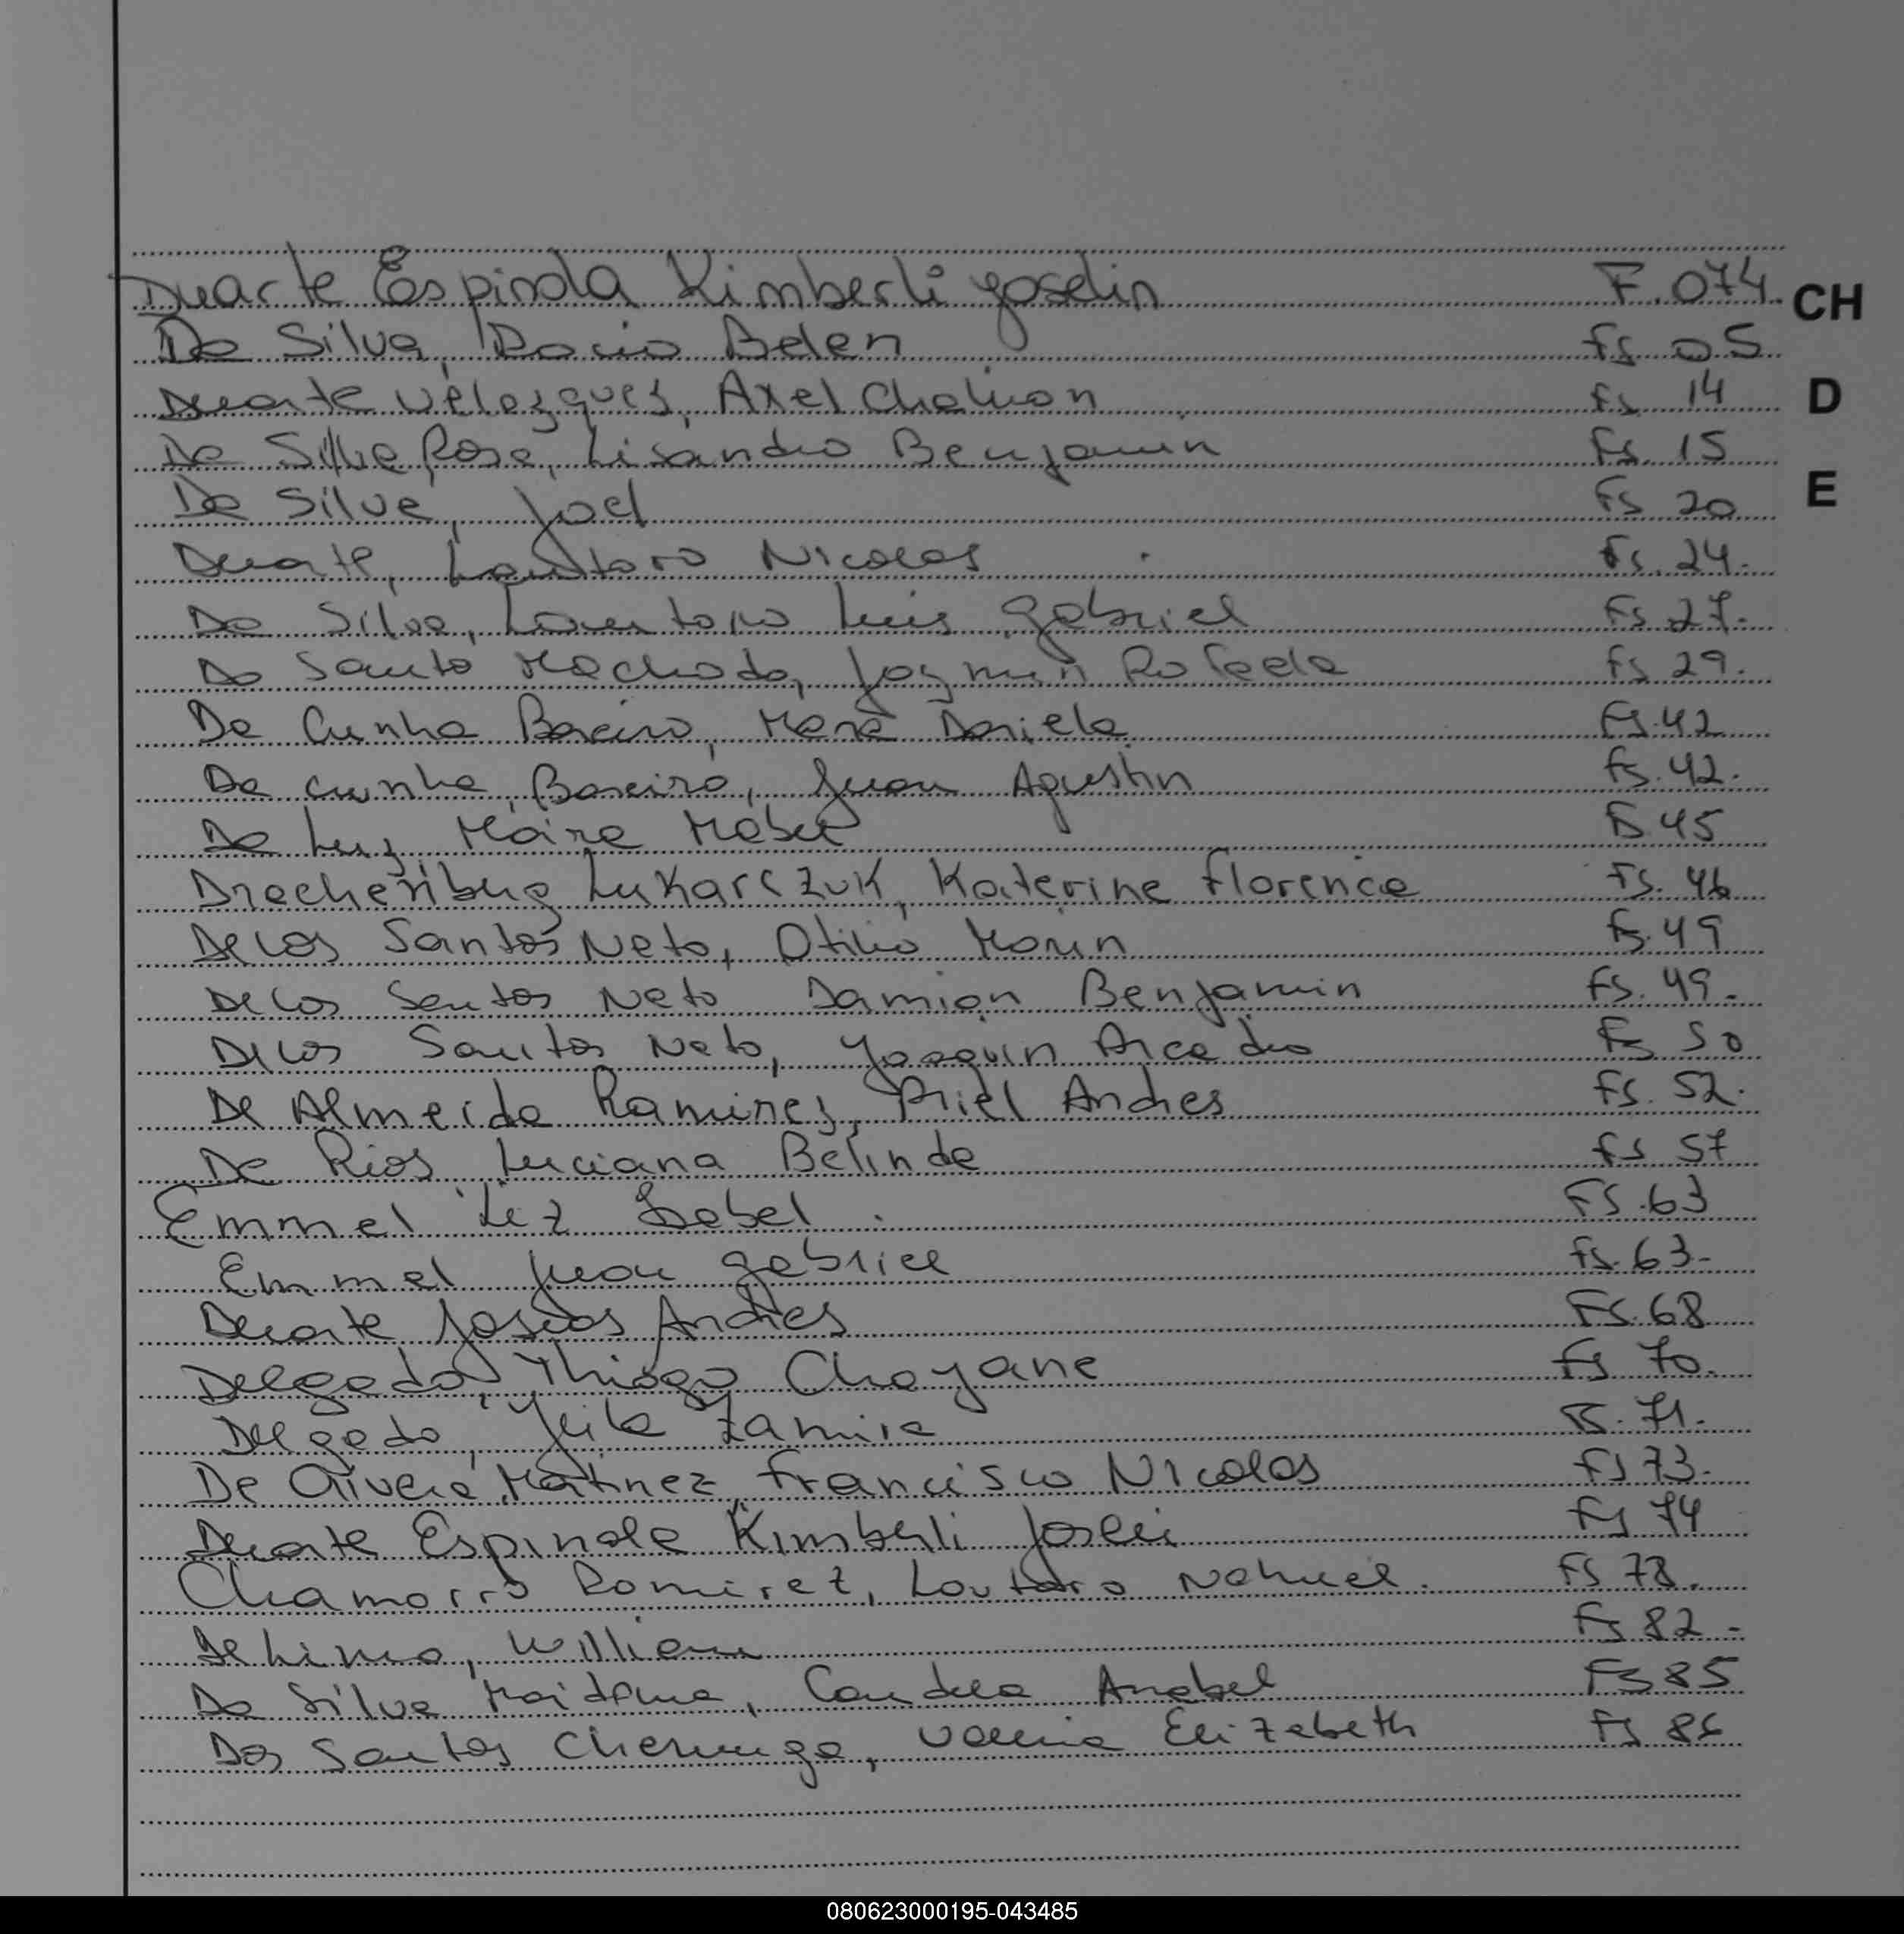 Duarte Espinola Kimberli Joselin F. 074 CH
Da Silva, Rocio Belen Fs 05
Duarte Velazques, Axel Fs 14 D
Da Silva Rosa, Lisandro Benjamin Fs. 15
Da Silva, Joel Fs 20 E
Duarte, Lautaro Nicolas Fs. 24.
Da Silva, Lautaro Luis Gabriel Fs 27.
Do Santo Machado, Jazmin Fs 29.
Da Cunha Bareiro, Daniela Fs. 42
Da Cunha, Bareiro, Juan Agustin Fs. 42.
Da Luz Maira Mabel Fs 45
Lukarczuk, Katerine Florencia Fs. 46
De los Santos Neto, Otilio Fs. 49
De los Santos Neto Damian Benjamin Fs. 49.
De los Santos Neto, Joaquin Fs 50
De Almeida Ramirez, Andres Fs. 52.
De Rios Luciana Belinda Fs 57
Emmel Liz Isabel. Fs. 63
Emmel Juan Gabriel Fs. 63.
Duarte Andres Fs. 68
Delgado, Thiago Fs 70.
Delgado, Zamira Fs. 71.
De Olivera Martinez, Francisco Nicolas Fs 73.
Duarte Espinola Kimberli Fs 74
Chamorro Ramirez, Lautaro Nahuel. Fs 78.
De Lima, William Fs 82.
Da Silva Maidana, Candela Anabel Fs 85
Dos Santos Elizabeth Fs 86
080623000195-043485